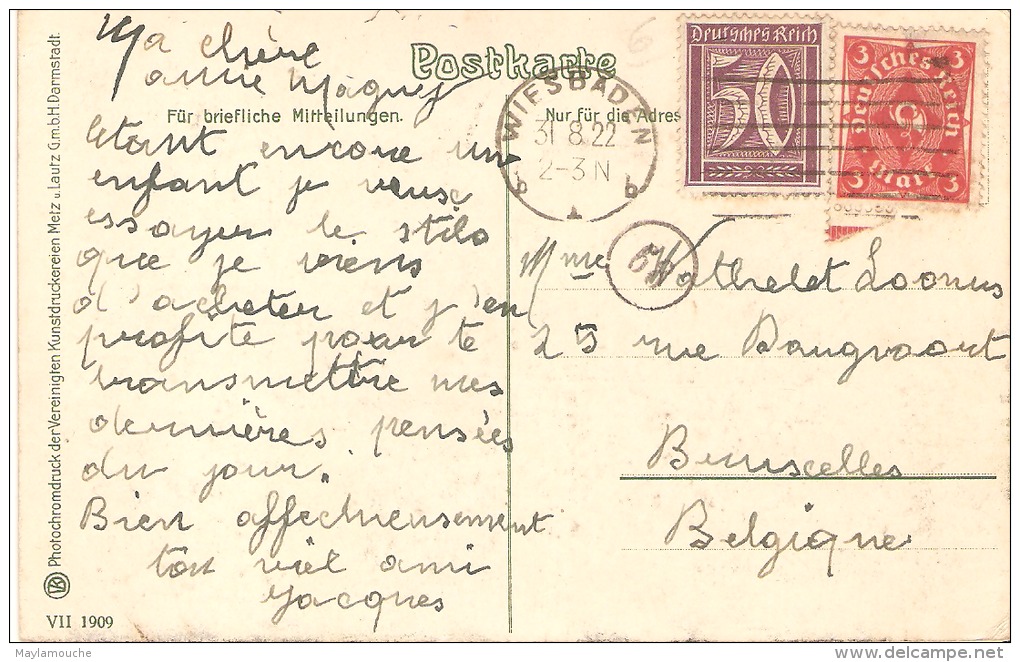 Ma chère
Postkarte
Für briefliche Mitteilungen.
Nur für die Adres
Deutsches Reich
50
3
3
Deutsches Reich
Mark
3
3
WIESBADEN
31 8.22
2-3 N
b
b
étant encore un
enfant je veux
essayer le stilo
que je viens
d'acheter et j'en
profite pour te
transmettre mes
dernières pensées
du jour.
Bien affectueusement
ton viel ami
Jacques
Mme Wathelet
25 rue
Bruxelles
Belgique
Photochromdruck der Vereinigten Kunstdruckereien Metz u. Lautz G.m.b.H. Darmstadt.
VII 1909
Maylamouche
delcampe.net